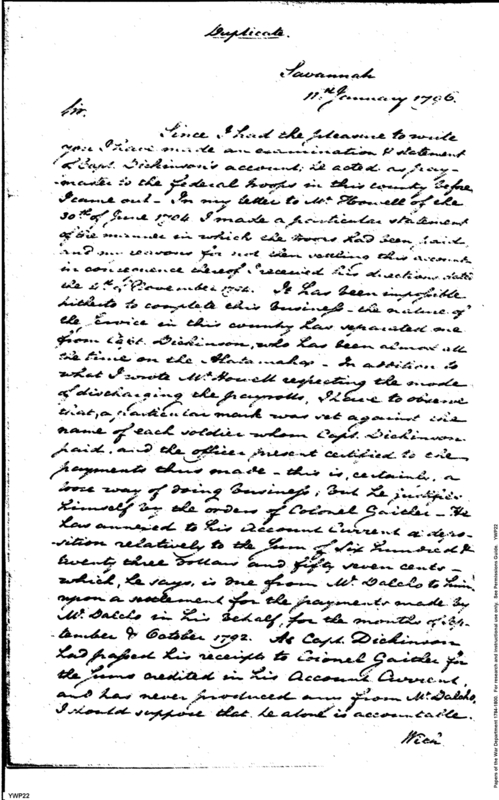 Duplicate.
Savannah
11th January 1796.
Sir.
Since I had the pleasure to write
you I have made an examination & statement
of Capt. Dickinson's account; he acted as pay-
master to the federal troops in this country before
I came out - In my letter to Mr Howell of the
30th of June 1794 I made a particular statement
of the manner in which the troops had been paid,
and my reasons for not then settling this account
in consequence thereof I received his directions dated
the 4th of November 1794. It has been impossible
hitherto to complete this business - the nature of
the service in this country has separated me
from Capt. Dickinson, who has been almost all
the time on the Alatamaha - In addition to
what I wrote Mr Howell respecting the mode
of discharging the payrolls, I have to observe
that, a particular mark was set against the
name of each soldier whom Capt. Dickinson
paid, and the officer present certified to the
payments thus made - this is, certainly, a
loose way of doing business; but he justifies
himself by the orders of Colonel Gaither - He
has annexed to his Account Current a depo-
sition relatively to the sum of Six hundred &
twenty three dollars and fifty seven cents -
which, he says, is due from Mr Dalcho to him
upon a settlement for the payments made by
Mr Dalcho in his behalf, for the months of Sep-
tember & October 1792. As Capt. Dickinson
had passed his receipts to Colonel Gaither for
the sums credited in his Account Current,
and has never produced any from Mr Dalcho,
I should suppose that he alone is accountable.
With
YWP22
Papers of the War Department 1784-1800. For research and instructional use only. See Permissions Guide. YWP22